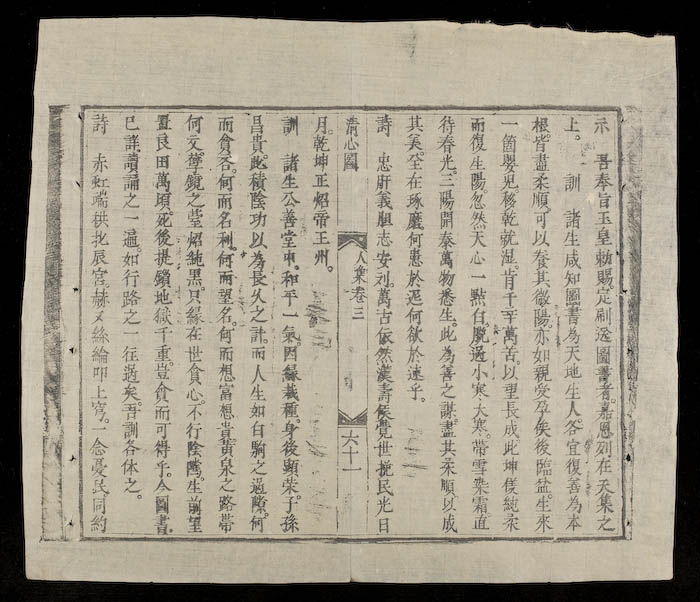 示　吾奉旨玉皇勅賜定刷送圖書者。嘉恩列在天集之
上。　訓　諸生咸知圖書為天地生人各宜復善為本
根。皆盡柔順。可以養其微陽。亦如親受孕矣後臨盆。生來
一箇嬰兒。移乾就濕。肯千辛萬苦。以望長成。此坤復純柔
而復生陽。忽然天心一點白。脫過小寒大寒。帶雪染霜。直
待春光。三陽開泰。萬物悉生。此為善之謀。盡其柔順以成
其美。至在琢磨。何患於遲。何欲於速乎。
詩　忠肝義胆志安刘。萬古依然漢壽侯。覺世挽民光日
清心圖　人集卷三　六十一
月。乾坤正炤帝王州。
訓　諸生公善堂中。和平一氣。因緣栽種。身後顯荣。子孫
昌貴。此積陰功以為長久之計。而人生如白駒之過隙。何
而貪吝。何而名利。何而望名。何而想富想貴。黃泉之路。帶
何文。孽鏡之莹。炤純黑。只緣在世貪心。不行陰隲。生前望
置良田萬頃。死後提鎖地獄千重。豈貪而可得乎。今圖書。
已詳讀誦之一遍。如行路之一徃過矣。吾訓各体之。
詩　赤虹端拱北辰宮。赫〻絲綸叩上穹。一念憂民同約